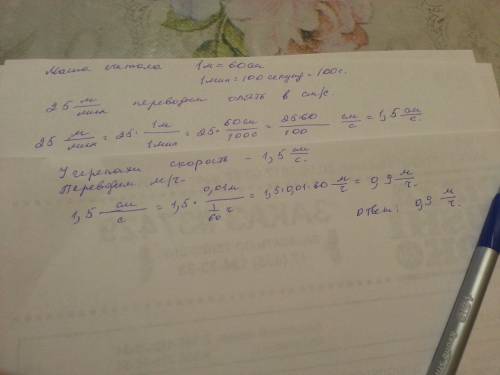 Маша считала 1м = 60см
1мин = 100 секунд = 100с.
25 м/мин переводим опять в см/с.
25 м/мин = 25 · 1м/1мин = 25 · 60см/100с = 25·60/100 см/с = 1,5 см/с
У черепахи скорость - 1,5 см/с.
Переводим м/ч.
1,5 см/с = 1,5 · 0,01м / 1/60 ч = 1,5·0,01·60 м/ч = 0,9 м/ч.
Ответ: 0,9 м/ч.